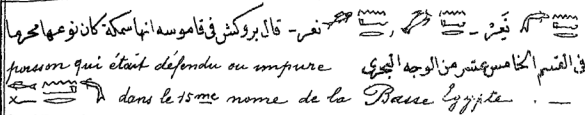 نَعَرْ ـ نعر ـ قال بروكش فى قاموسه انها سمكة كان نوعها محرما
فى القسم الخامس عشر من الوجه البحرى
poisson qui était défendu ou impure
dans le 15me nome de la Basse Égypte. —